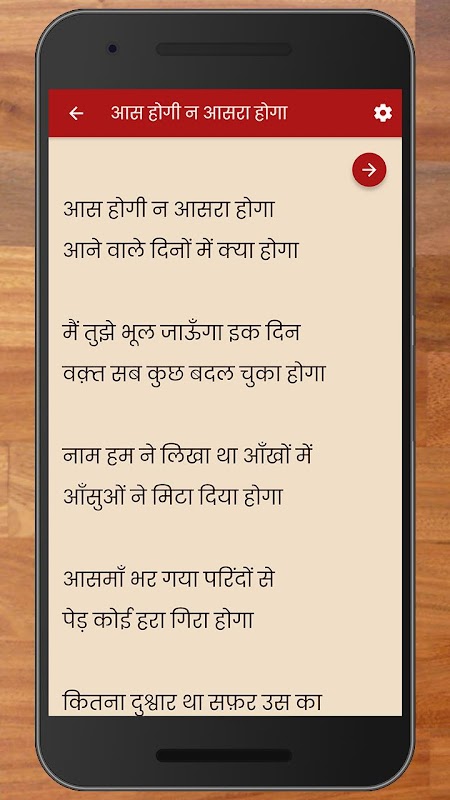 आस होगी न आसरा होगा
आस होगी न आसरा होगा
आने वाले दिनों में क्या होगा
मैं तुझे भूल जाऊँगा इक दिन
वक़्त सब कुछ बदल चुका होगा
नाम हम ने लिखा था आँखों में
आँसुओं ने मिटा दिया होगा
आसमाँ भर गया परिंदों से
पेड़ कोई हरा गिरा होगा
कितना दुश्वार था सफ़र उस का